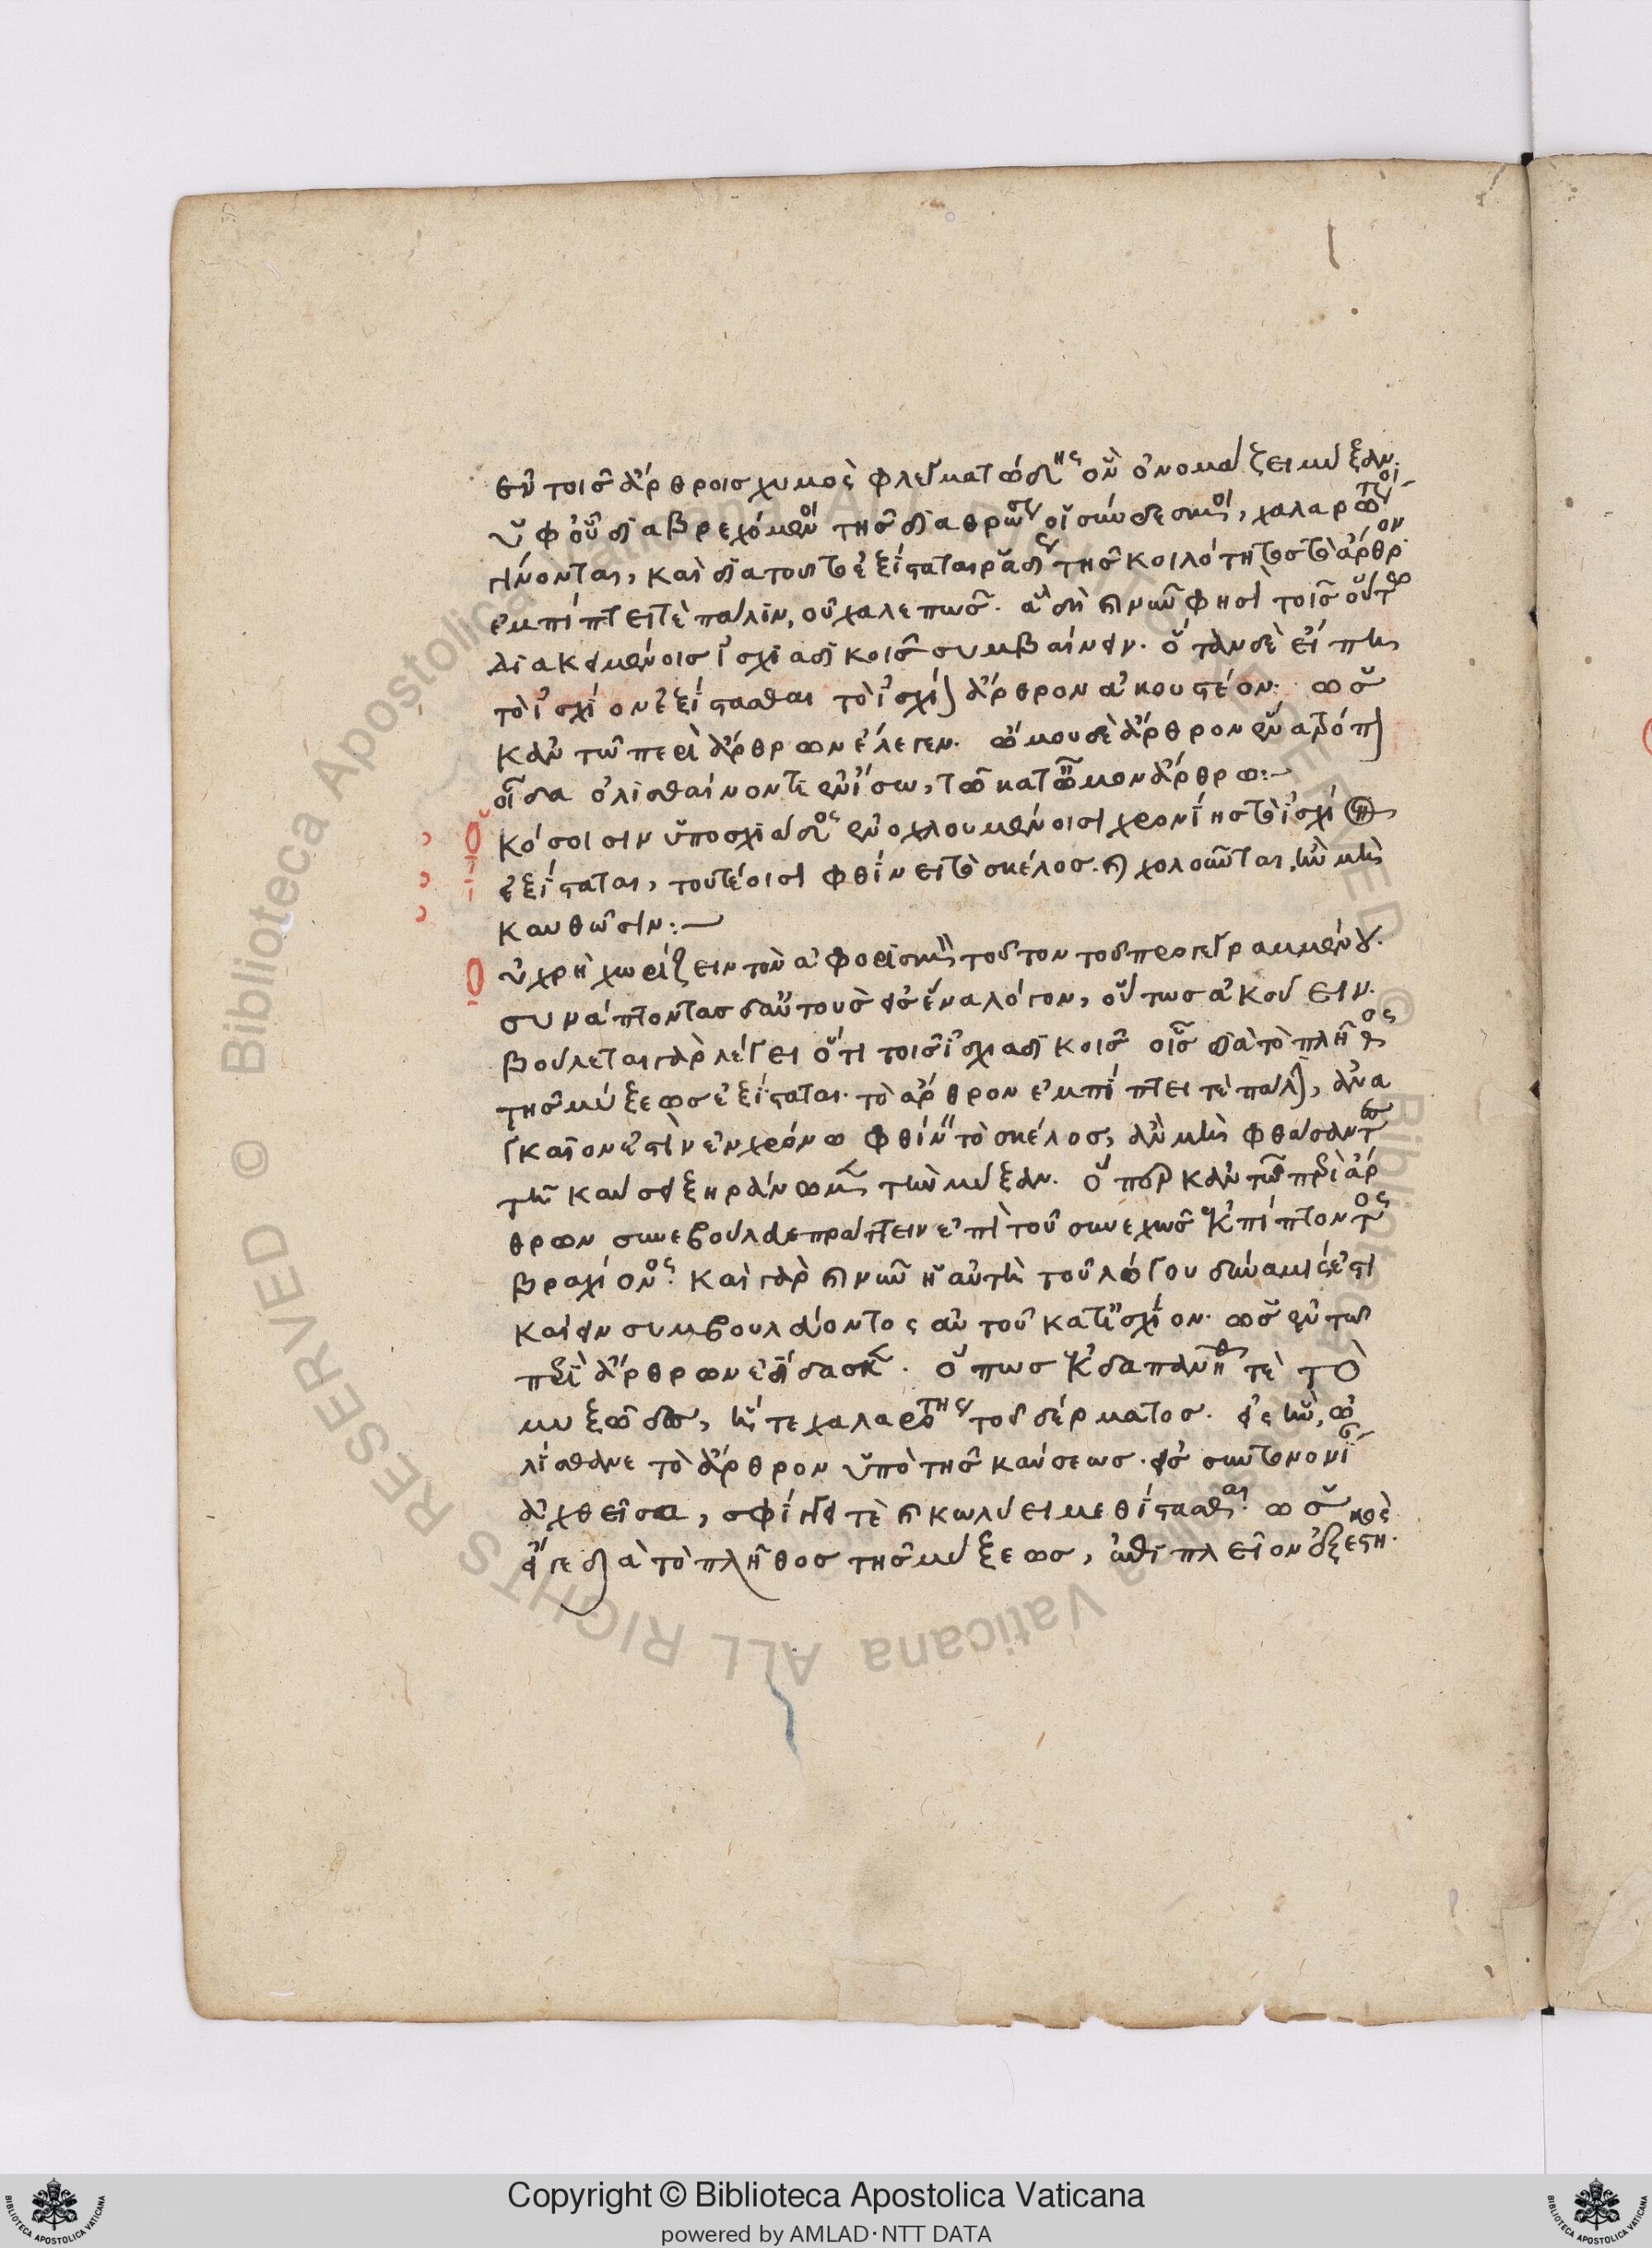 ἐν τοῖς ἄρθροις χυμὸς φλεγματώδης ὃν ὀνομάζει μύξαν.
ὑφ' οὗ διαβρεχόμενοι τῆς διαθρώσεως οἱ σύνδεσμοι, χαλαρώτεροι
γίνονται, καὶ διατοῦτο ἐξίσταται ῥαδίως τῆς κοιλότητος τὸ ἄρθρον.
ἐμπίπτει τὲ πάλιν, οὐ χαλεπῶς. ὃ δὴ καὶ νῦν φησὶ τοῖς οὕτω
διακειμένοις ἰσχιαδικοῖς συμβαίνειν. ὅταν δὲ εἴπῃ
τὸ ἰσχίον ἐξίστασθαι τὸ ἰσχίον ἄρθρον ἀκουστέον. ὡς
κἂν τῶ περὶ ἄρθρων ἔλεγεν. ὤμου δὲ ἄρθρον ἕνα τρόπον
οἶδα ὀλισθαίνον
Ὁκόσοισιν ὑπὸ ἰσχιάδος ἐνοχλουμένοισι χρονίης τὸ ἰσχίον
ἐξίσταται, τουτέοισι φθίνει τὸ σκέλος. καὶ χολοῦνται, ἢν μὴ
καυθῶσιν:
Οὐ χρὴ χωρίζειν τὸν ἀφορισμὸν τοῦτον τοῦ προγεγραμμένου.
συνάπτοντας δ' αὐτοὺς εἰς ἕνα λόγον, οὕτως ἀκούειν.
βούλεται γὰρ λέγει ὅτι τοῖς ἰσχιαδικοῖς οἷς διὰ τὸ πλῆθος
τῆς μύξεως ἐξίσταται τὸ ἄρθρον ἐμπίπτει τὲ πάλιν, ἀνα
γκαῖον ἐστὶν ἐν χρόνω φθίνειν τὸ σκέλος, ἂν μὴ φθάσαντες
τῇ καύσει ξηράνωμεν τὴν μύξαν. ὅπερ κἂν τῶ περὶ ἄρ
θρων συνεβούλευε πράττειν ἐπὶ τοῦ συνεχῶς ἐκπίπτοντος
βραχίονος. καὶ γὰρ καὶ νῦν ἡ αὐτὴ τοῦ λόγου δύναμις ἐστι
καίειν συμβουλεύοντος αὐτοῦ κατ' ἰσχίον. ὡς ἐν τῶ
περὶ ἄρθρων ἐδίδασκεν. ὅπως ἐκδαπανηθῇ τὲ τὸ
μυξῶδες, ἥ τε χαλαρότης τοῦ δέρματος. εἰς ἣν, ὠ
λίσθανε τὸ ἄρθρον ὑπὸ τῆς καύσεως. εἰς συντονον
ἀχθεῖσα, σφίγγει τὲ καὶ κωλύει μεθίστασθαι. ὡς
εἴγε διὰ τὸ πλῆθος τῆς μύξεως, ἐπὶ πλεῖον